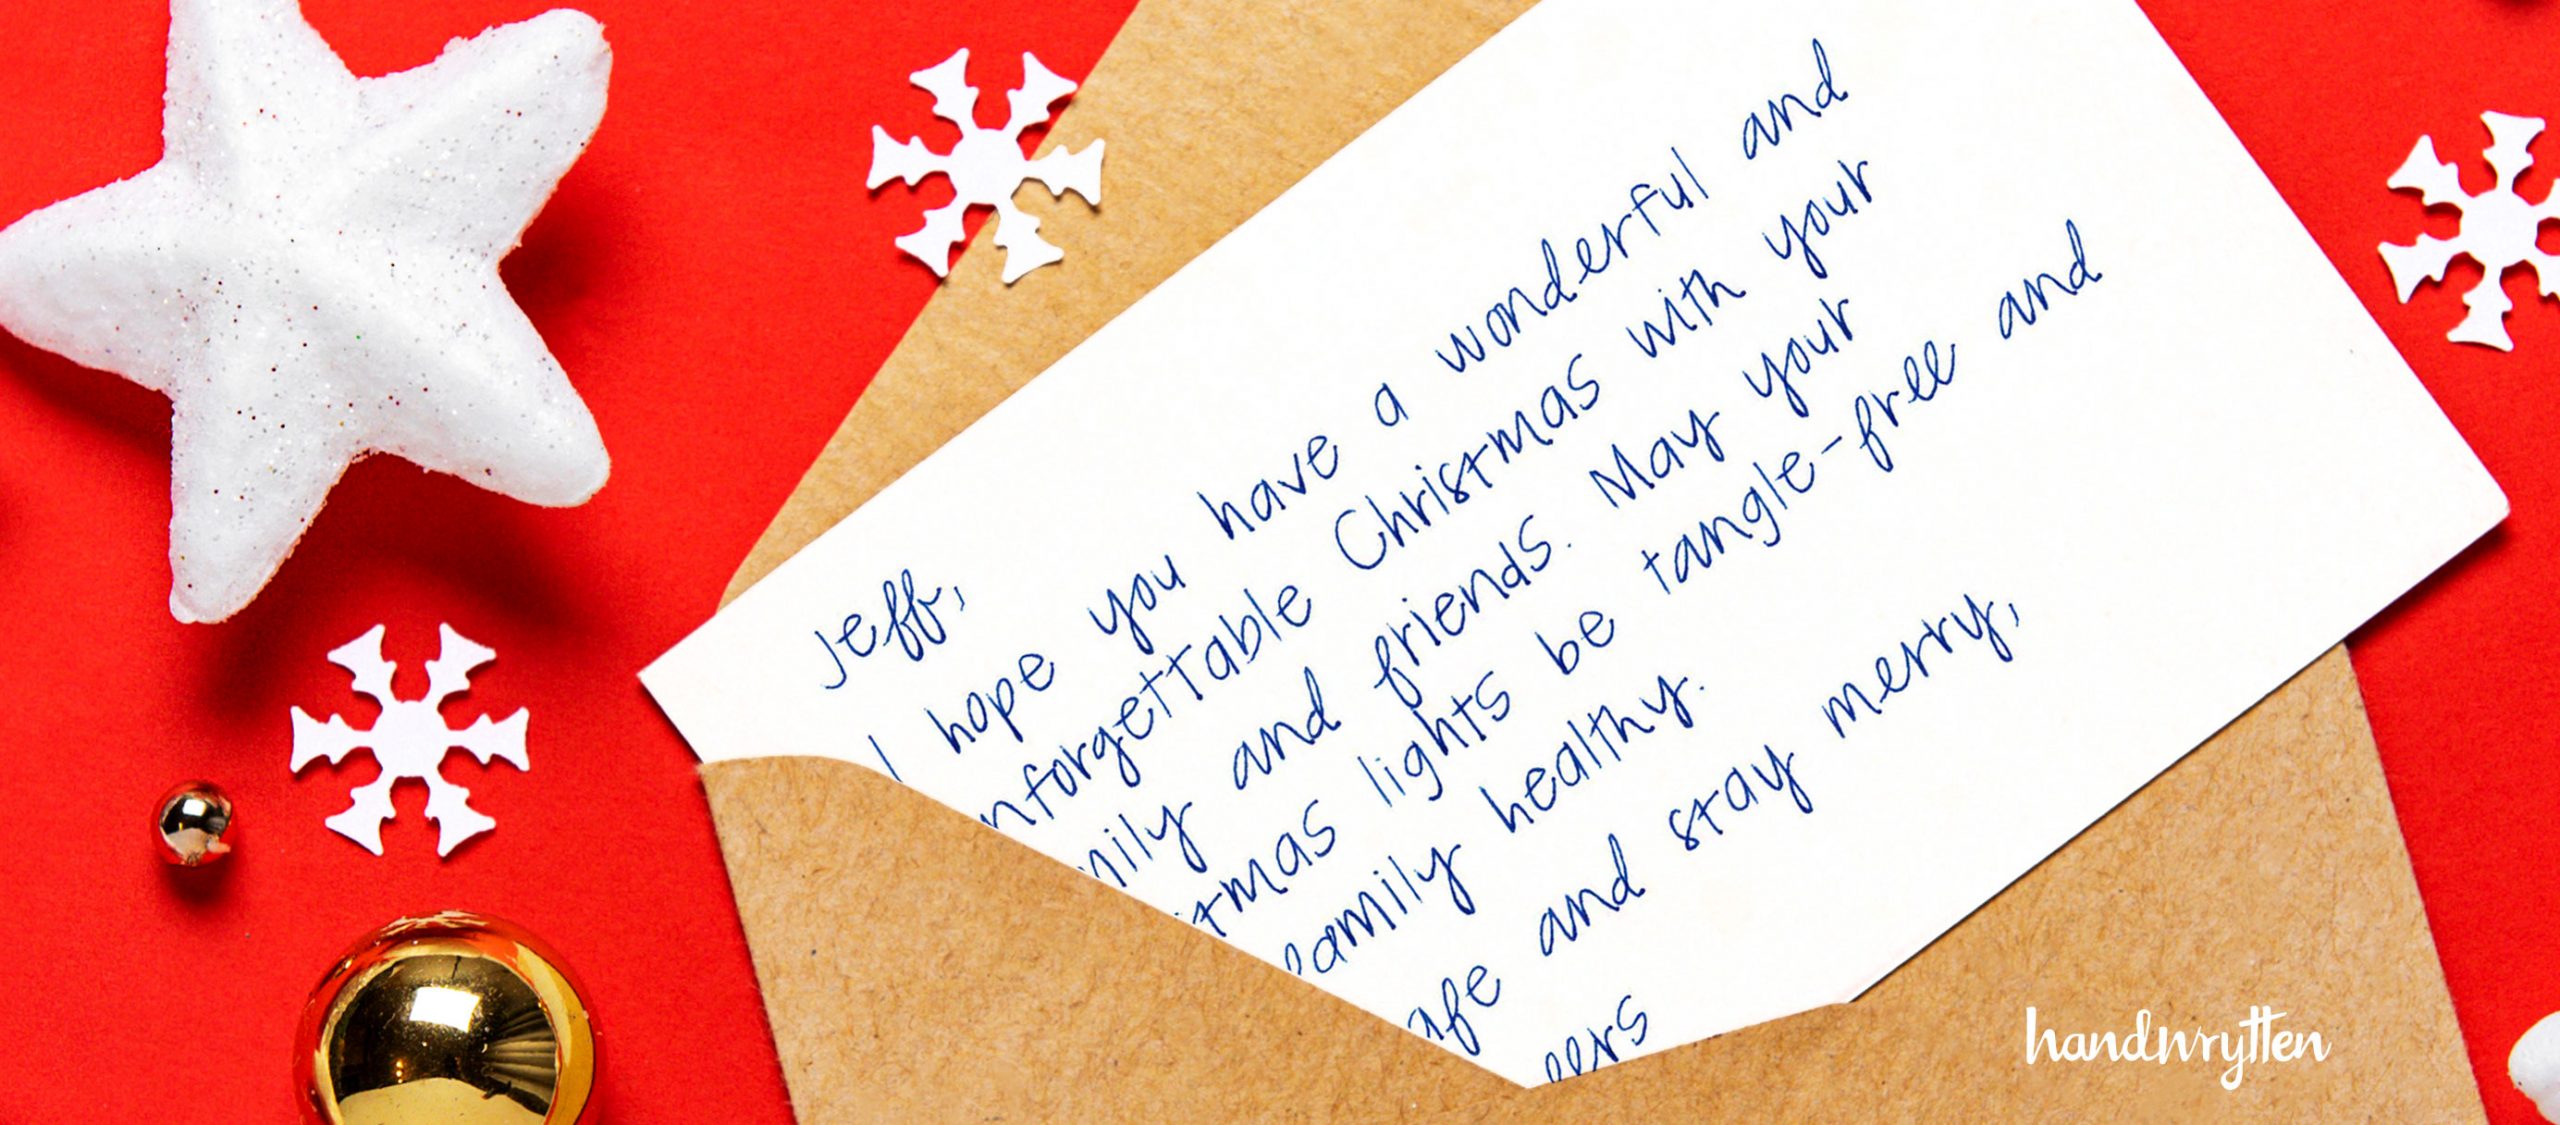 Jeff,
I hope you have a wonderful and
nforgettable Christmas with your
mily and friends. May your
tmas lights be tangle-free and
family healthy.
afe and stay merry,
eers
handwrytten